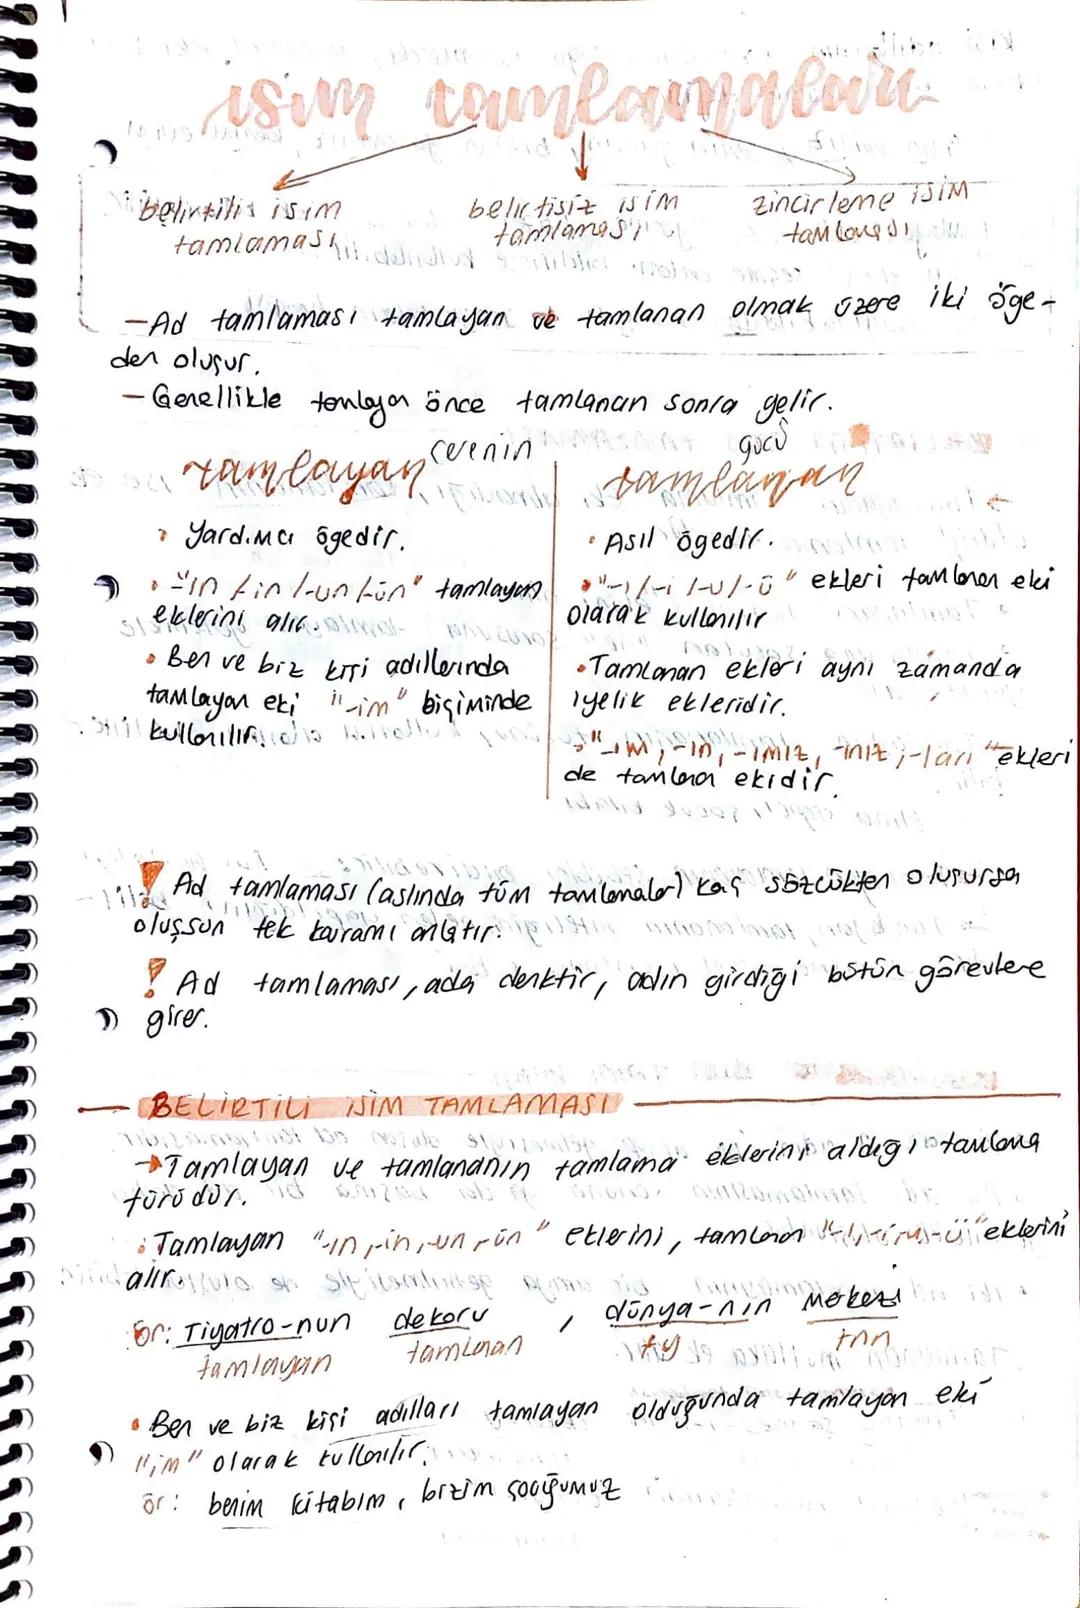 isim tamlamaları
belirtili isim
tamlaması
belirtisiz isim
tamlaması
zincirleme isim
tamlaması
-Ad tamlaması tamlayan ve tamlanan olmak üzere iki öge-
den oluşur.
- Genellikle tamlayan önce tamlanan sonra gelir.
tamlayan
evrenin
• Yardımcı ögedir.
• "-ın /-in /-un /-ün" tamlayan
eklerini alır.
• Ben ve biz kişi adıllarında
tamlayan eki "-im" biçiminde
kullanılır.
gücü
tamlanan
• Asıl ögedir.
• "-ı /-i /-u /-ü" ekleri tamlanan eki
olarak kullanılır
• Tamlanan ekleri aynı zamanda
iyelik ekleridir.
• "-ım, -ın, -ımız, -ınız, -ları" ekleri
de tamlanan ekidir.
! Ad tamlaması (aslında tüm tamlamalar) kaç sözcükten oluşursa
oluşsun tek kavramı anlatır.
! Ad tamlaması, ada denktir, adın girdiği bütün görevlere
girer.
BELİRTİLİ İSİM TAMLAMASI
→ Tamlayan ve tamlananın tamlama eklerini aldığı tamlama
türüdür.
• Tamlayan "-ın, -in, -un, -ün" eklerini, tamlanan "-ı, -i, -u, -ü" eklerini
alır.
ör: Tiyatro-nun dekoru , dünya-nın merkezi
tamlayan tamlanan ty tnn
• Ben ve biz kişi adılları tamlayan olduğunda tamlayan eki
"im" olarak kullanılır.
ör: benim kitabım, bizim çocuğumuz